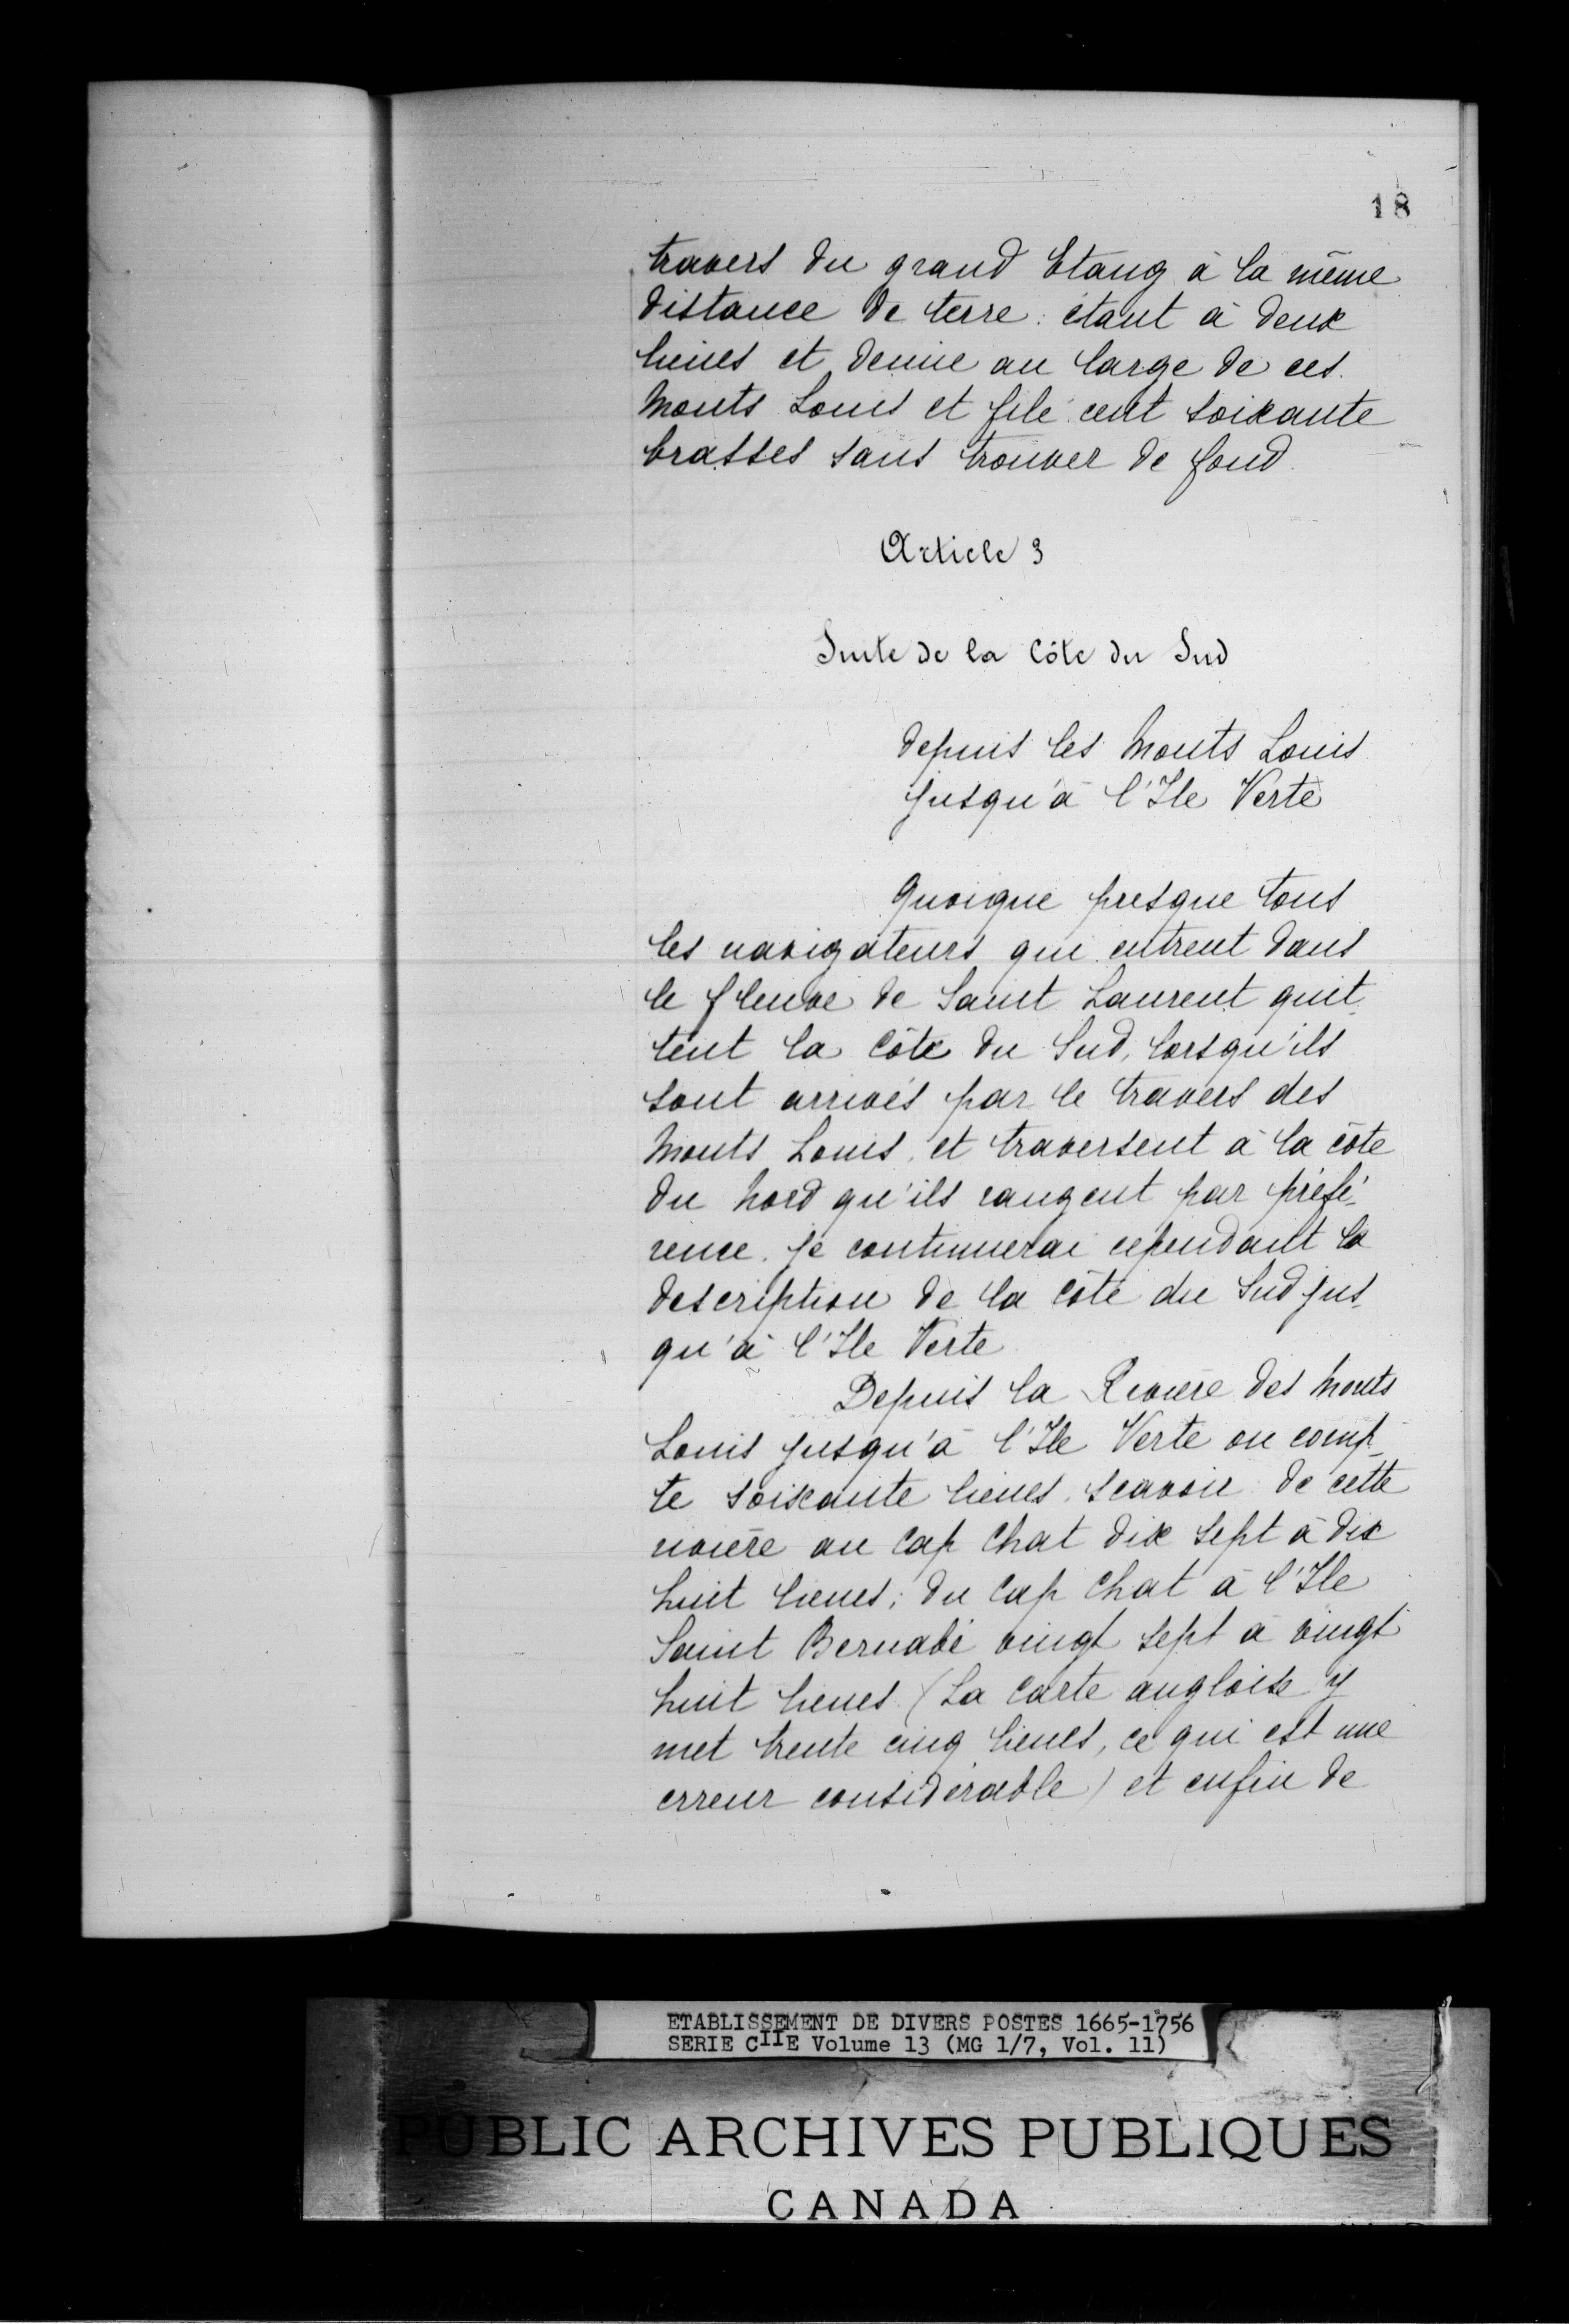 18
travers du grand Etang à la même
distance de terre : étant à deux
lieues et demie au large de ces
Monts Louis et filé cent soixante
brasses sans trouver de fond
Article 3
Suite de la Côte du Sud
depuis les Monts Louis
jusqu'à l'Ile Verte
Quoique presque tous
les navigateurs qui entrent dans
le fleuve de Saint Laurent quit-
tent la Côte du Sud, lorsqu'ils
sont arrivés par le travers des
Monts Louis, et traversent à la côte
du Nord qu'ils rangent par préfé-
rence. je continuerai cependant la
description de la Côte du Sud jus-
qu'à l'Ile Verte
Depuis la Rivière des Monts
Louis jusqu'à l'Ile Verte on comp-
te soixante lieues. scavoir de cette
rivière au Cap Chat dix sept à dix
huit lieues ; du Cap Chat à l'Ile
Saint Bernabé vingt sept à vingt
huit lieues (La Carte angloise y
met trente cinq lieues, ce qui est une
erreur considérable) et enfin de
ETABLISSEMENT DE DIVERS POSTES 1665-1756
SERIE CIIE Volume 13 (MG 1/7, Vol. 11)
PUBLIC ARCHIVES PUBLIQUES
CANADA